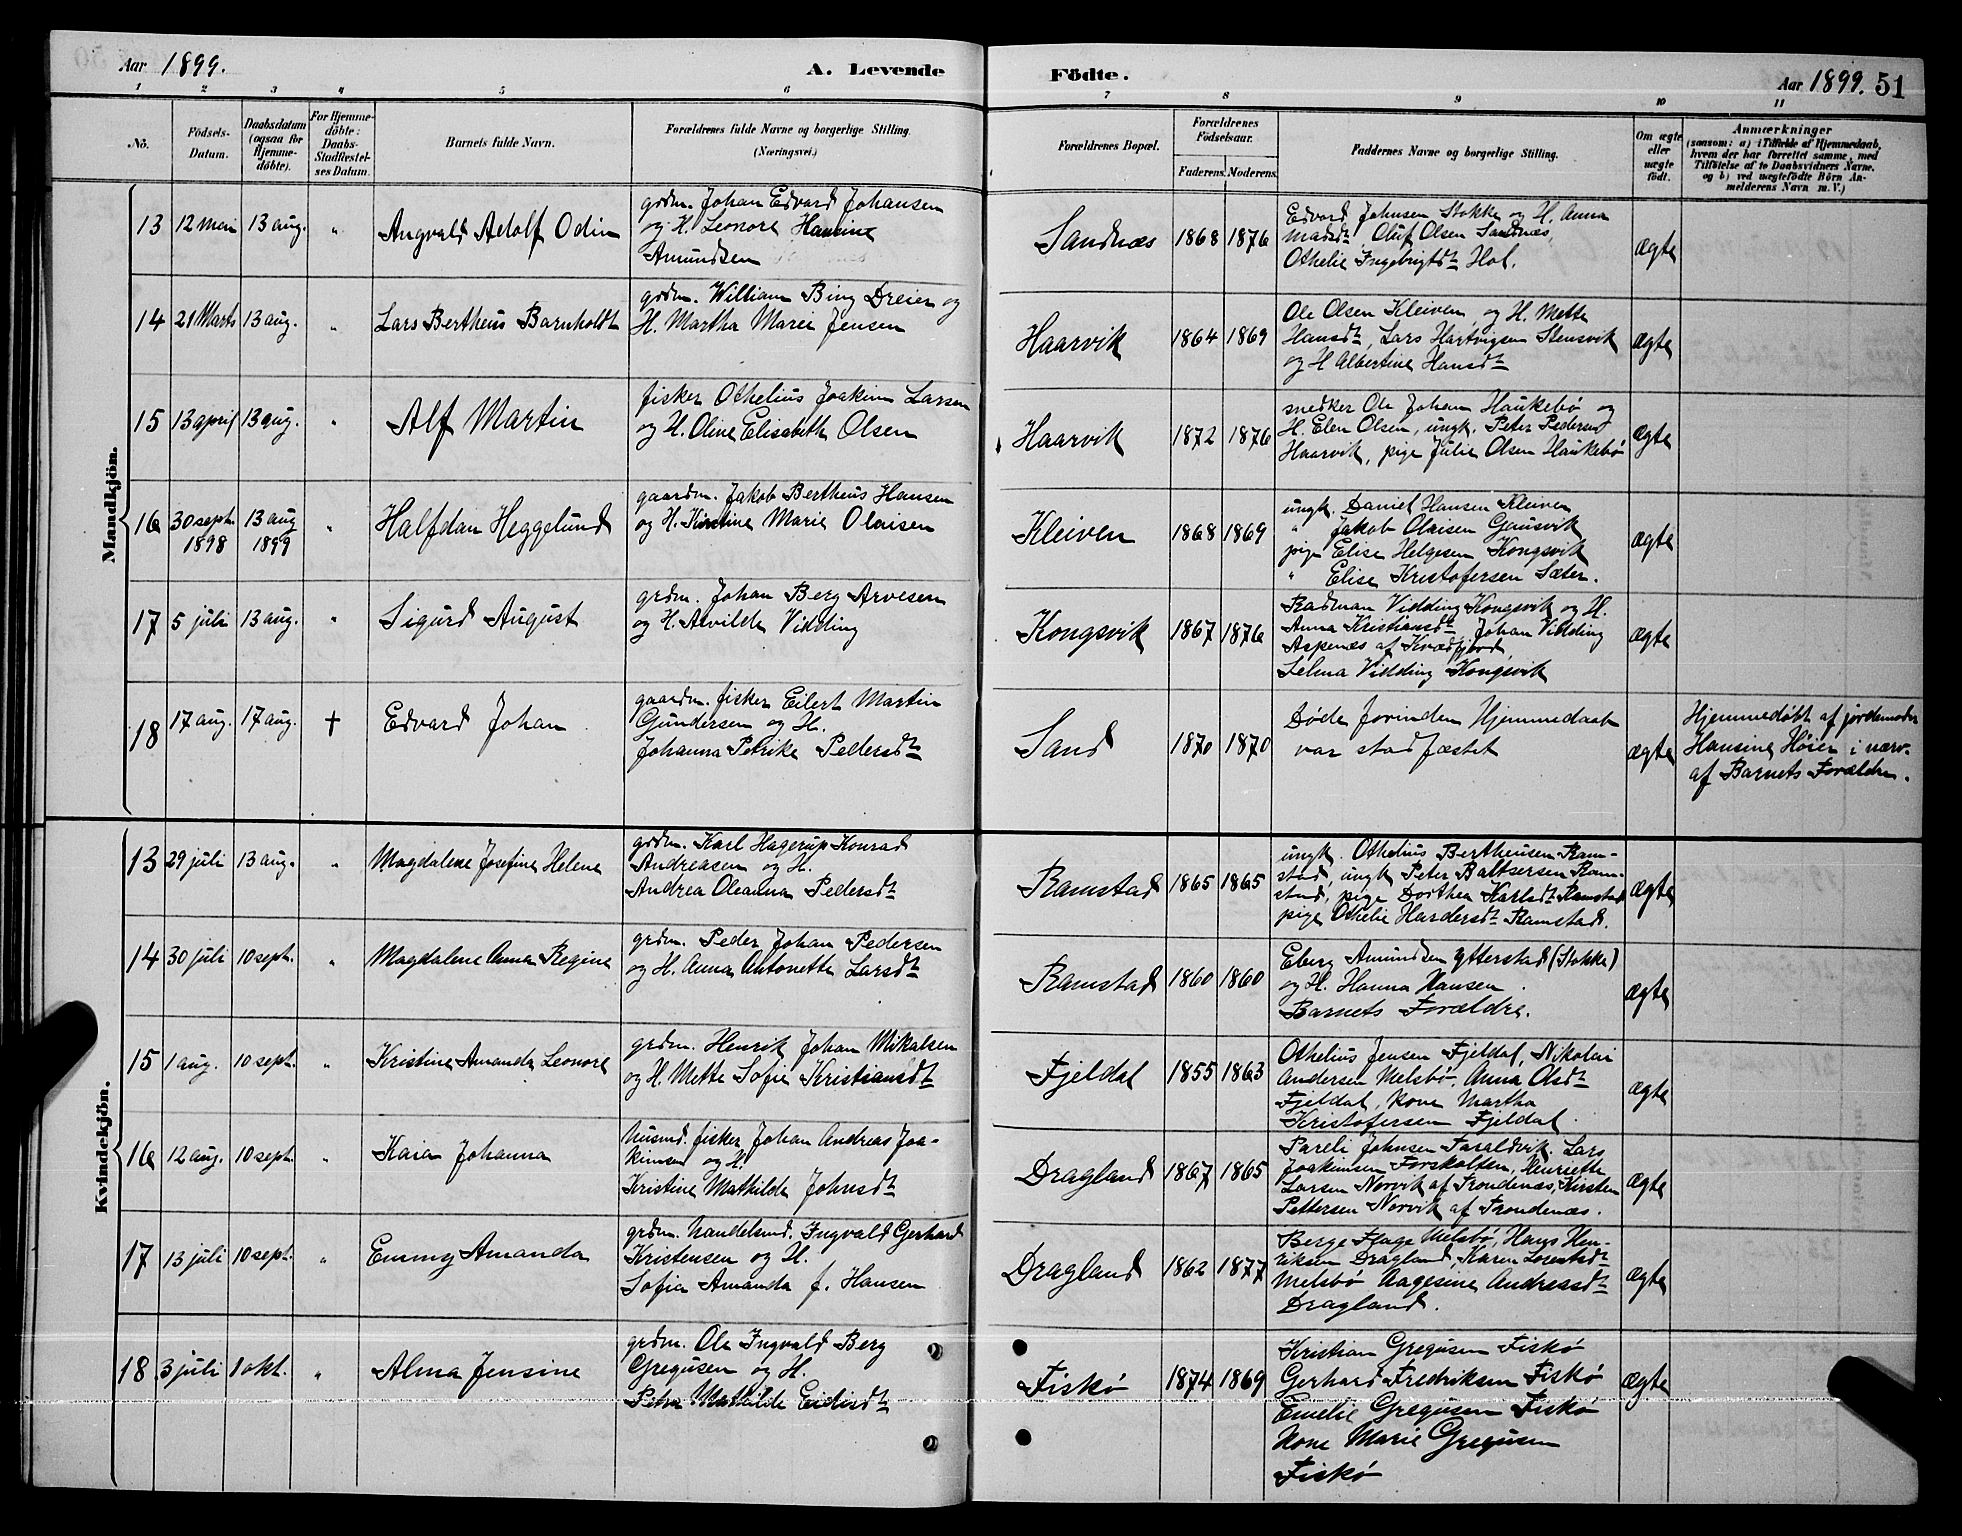 Aar 1899. A. Levende Födte. Aar 1899. 51
1 2 3 4 5 6 7 8 9 10 11
No.
Födsels-
Datum.
Daabsdatum
(ogsaa for
Hjemme-
döbte).
For Hjemme-
döbte:
Daabs-
Stadfæstel-
ses Datum.
Barnets fulde Navn.
Forældrenes fulde Navne og borgerlige Stilling.
(Næringsvei.)
Forældrenes Bopæl.
Forældrenes
Födselsaar.
Faderens. Moderens.
Faddernes Navne og borgerlige Stilling.
Om ægte
eller
uægte
födt.
Anmærkninger
(saasom: a) i Tilfælde af Hjemmedaab,
hvem der har forrettet samme, med
Tilföielse af to Daabsvidners Navne,
og b) ved uægtefödte Börn An-
melderens Navn m. V.)
Mandkjön.
13 12 mai 13 aug. " Angvald Adolf Odin
grdm. Johan Edvard Johansen
og H. Leonore Hansine
Amundsen
Sandnæs 1868 1876
Edvard Johnsen Stokke og H. Anna
Madsdt, Oluf Olsen Sandnæs,
Othelie Ingebrigtsdt Hol.
ægte
14 21 Marts 13 aug. " Lars Bertheus Barnholdt
grdm. William Bing Dreier og
H. Martha Marei Jensen
Haarvik 1864 1869
Ole Olsen Kleiven og H. Mette
Hansdt, Lars Hartvigsen Stensvik
og H Albertine Hansdt
ægte
15 13 april 13 aug. " Alf Martin
fisker Othelius Joakim Larsen
og H. Oline Elisabeth Olsen
Haarvik 1872 1876
snedker Ole Johan Haukebø og
H. Elen Olsen, ungk. Peter Pedersen
Haarvik, pige Julie Olsen Haukebø
ægte
16 30 sept. 1898 13 aug 1899 " Halfdan Heggelund
gaardm. Jakob Bertheus Hansen
og H. Kirstine Marie Olaisen
Kleiven 1868 1869
ungk. Daniel Hansen Kleiven
" Jakob Olaisen Gausvik
pige Elise Helgesen Kongsvik
" Elise Kristofersen Sæter.
ægte
17 5 juli 13 aug. " Sigurd August
grdm. Johan Berg Arvesen
og H. Alvilde Vidding
Kongsvik 1867 1876
Radman Vidding Kongsvik og H.
Anna Kristiansdt, Johan Vidding
Aspenæs af Kvædfjord,
Selma Vidding Kongsvik
ægte
18 17 aug. 17 aug. † Edvard Johan
gaardm. fisker Eilert Martin
Gundersen og H.
Johanna Petrike Pedersdt
Sand 1870 1870
Døde forinden Hjemmedaab
var stadfæstet
ægte
Hjemmedøbt af jordemoder
Hansine Høier i nærv.
af Barnets Forældre.
Kvindekjön.
13 29 juli 13 aug. " Magdalene Josefine Helene
grdm. Karl Hagerup Konrad
Andreasen og H.
Andrea Oleanna Pedersdt
Ramstad 1865 1865
ungk. Othelius Bertheusen Ram-
stad, ungk Peter Baltsersen Ram-
stad, pige Dorthea Karlsdt Ramstad
pige Othelie Hardersdt Ramstad.
ægte
14 30 juli 10 sept. " Magdalene Anna Regine
grdm. Peder Johan Pedersen
og H. Anna Antonette Larsdt
Ramstad 1860 1860
Eberg Amundsen Ytterstad (Stokke)
og H. Hanna Hansen
Barnets Forældre.
ægte
15 1 aug. 10 sept. " Kristine Amanda Leonore
grdm. Henrik Johan Mikalsen
og H. Mette Sofie Kristiansdt
Fjeldal 1855 1863
Othelius Jensen Fjeldal, Nikolai
Andersen Melsbø, Anna Olsdt
Fjeldal, kone Martha
Kristofersen Fjeldal.
ægte
16 12 aug. 10 sept. " Kaia Johanna
husmd. fisker Johan Andreas Joa-
kimsen og H.
Kristine Mathilde Johnsdt
Dragland 1867 1865
Pareli Johnsen Taraldvik, Lars
Joakimsen Forskolten, Henriette
Larsen Norvik af Trondenæs, Kirsten
Pettersen Norvik af Trondenæs.
ægte
17 13 juli 10 sept. " Emmy Amanda
grdm. handelsmd. Ingvald Gerhard
Kristensen og H.
Sofie Amanda f. Hansen
Dragland 1862 1877
Berge Flage Melsbø, Hans Hen-
riksen Dragland, Karen Lorentsdt
Melsbø Aagesine Andreasdt
Dragland.
ægte
18 3 juli 1 okt. " Alma Jensine
grdm. Ole Ingvald Berg
Gregusen og H.
Petra Mathilde Eidisdt
Fiskø 1874 1869
Kristian Gregusen Fiskø
Gerhard Fredriksen Fiskø
Emelie Gregusen Fiskø
Kone Marie Gregusen
Fiskø
ægte